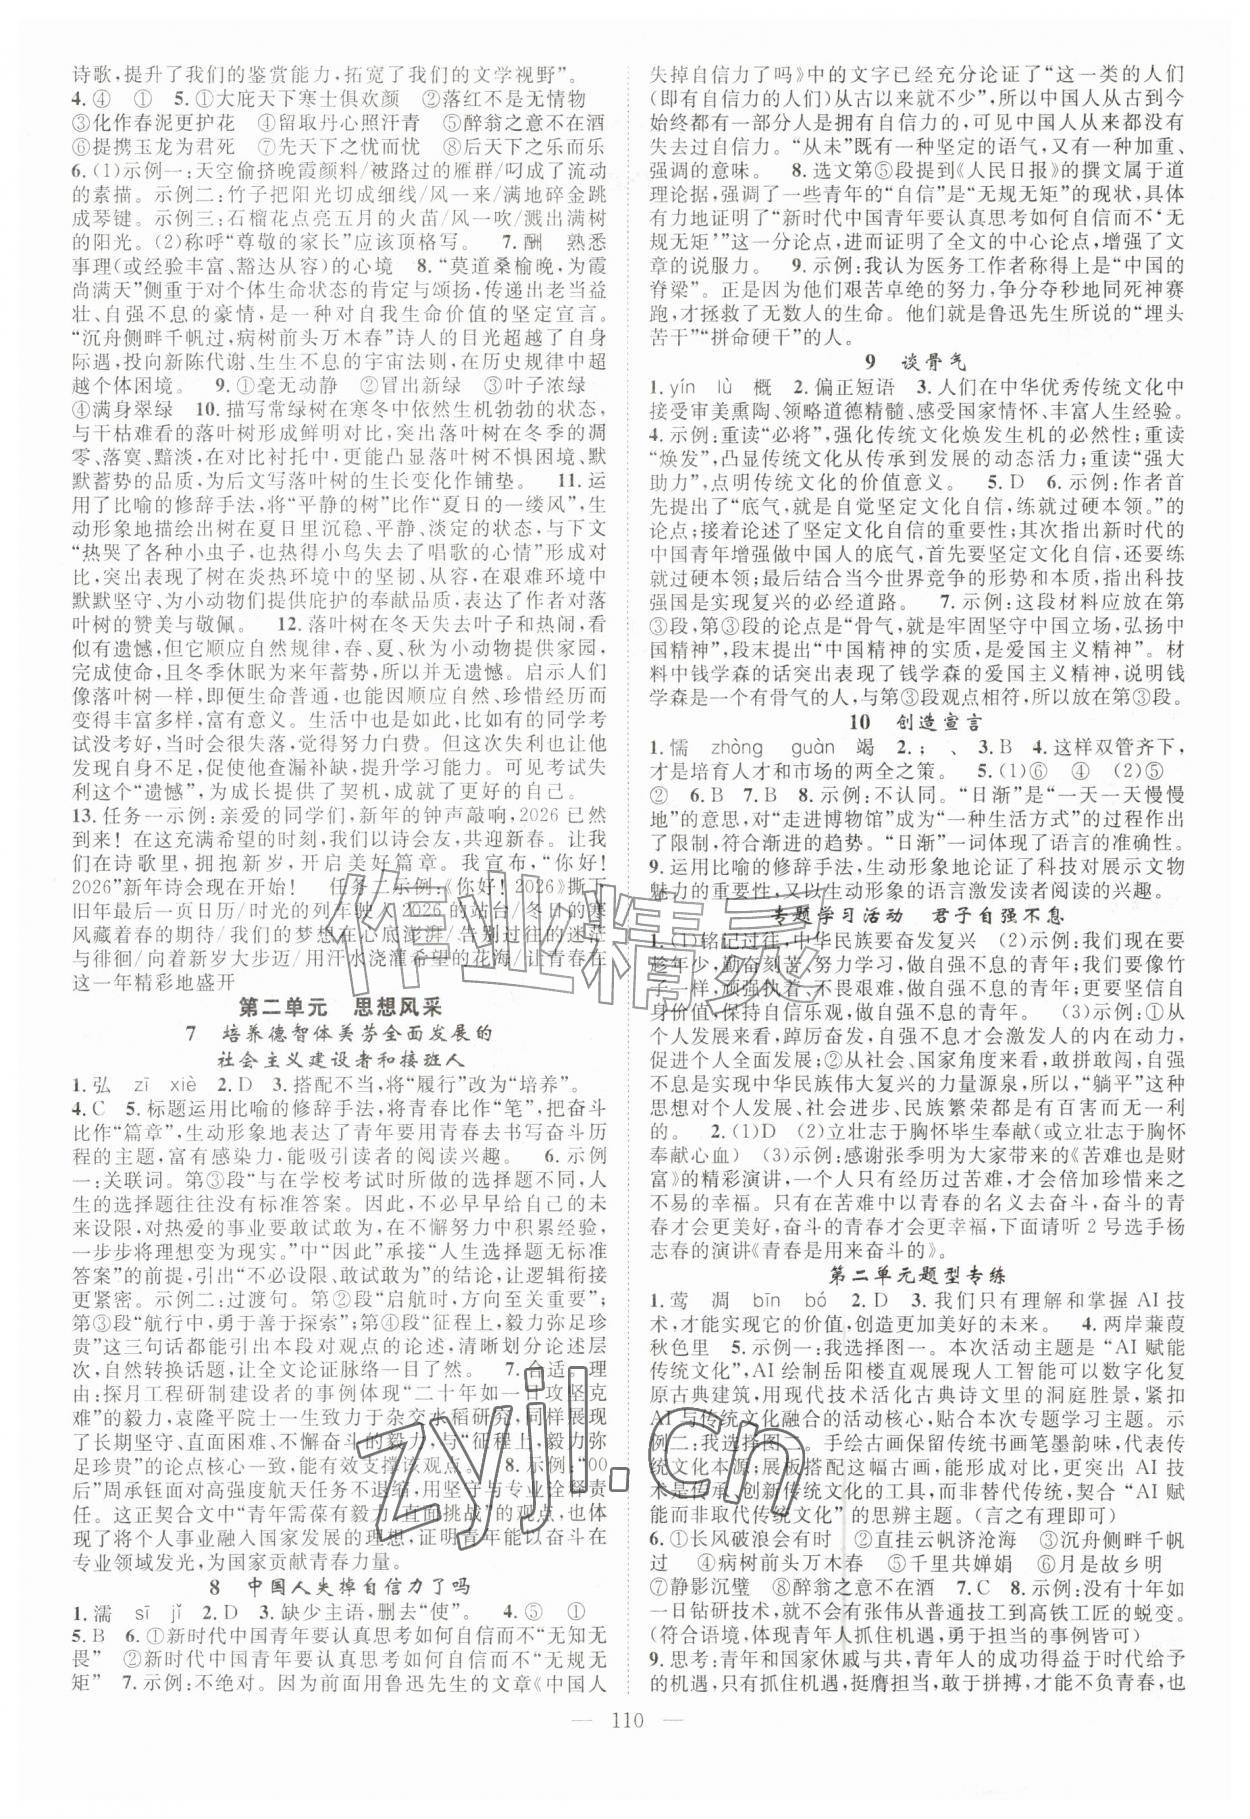 诗歌,提升了我们的鉴赏能力,拓宽了我们的文学视野”。
4.④　①　5.①大庇天下寒士俱欢颜　②落红不是无情物
③化作春泥更护花　④留取丹心照汗青　⑤醉翁之意不在酒
⑥提携玉龙为君死　⑦先天下之忧而忧　⑧后天下之乐而乐
6.(1)示例一:天空偷挤晚霞颜料/被路过的雁群/叼成了流动
的素描。示例二:竹子把阳光切成细线/风一来/满地碎金跳
成琴键。示例三:石榴花点亮五月的火苗/风一吹/溅出满树
的阳光。(2)称呼“尊敬的家长”应该顶格写。　7.酬　熟悉
事理(或经验丰富、豁达从容)的心境　8.“莫道桑榆晚,为霞
尚满天”侧重于对个体生命状态的肯定与颂扬,传递出老当益
壮、自强不息的豪情,是一种对自我生命价值的坚定宣言。
“沉舟侧畔千帆过,病树前头万木春”诗人的目光超越了自身
际遇,投向新陈代谢、生生不息的宇宙法则,在历史规律中超
越个体困境。　9.①毫无动静　②冒出新绿　③叶子浓绿
④满身翠绿　10.描写常绿树在寒冬中依然生机勃勃的状态,
与干枯难看的落叶树形成鲜明对比,突出落叶树在冬季的凋
零、落寞、黯淡,在对比衬托中,更能凸显落叶树坚韧不屈、默
默蓄势的品质,为后文写落叶树的生长变化作铺垫。　11.运
用了比喻的修辞手法,将“平静的树”比作“夏日的一缕风”,生
动形象地描绘出树在夏日里沉稳、平静、淡定的状态,与下文
“热哭了各种小虫子,也热得小鸟失去了唱歌的心情”形成对
比,突出表现了树在炎热环境中的坚韧、从容,在艰难环境中
默默坚守、为小动物们提供庇护的奉献品质,表达了作者对落
叶树的赞美与敬佩。　12.落叶树在冬天失去叶子和热闹,看
似有遗憾,但它顺应自然规律,春、夏、秋为小动物们提供家园,
完成使命,且冬季休眠为来年蓄势,所以并不遗憾。启示人们
像落叶树一样,即便生命普通,也能因顺应自然、珍惜经历而
变得丰富多样,富有意义。生活中也是如此,比如有的同学考
试没考好,当时会很失落,觉得努力白费。但这次失利也让他
发现自身不足,促使他查漏补缺,提升学习能力。可见考试失
利这个“遗憾”,为成长提供了契机,成就了更好的自己。
13.任务一示例:亲爱的同学们,新年的钟声敲响,2026已然
到来!在这充满希望的时刻,我们以诗会友,共迎新春。让我
们在诗歌里,拥抱新岁,开启美好篇章。我宣布,“你好!
2026”新年诗会现在开始!　　任务二示例:《你好!2026》撕下
旧年最后一页日历/时光的列车驶入2026的站台/冬日的寒
风藏着春的期待/我们的梦想在心底澎湃/告别过往的迷茫
与徘徊/向着新岁大步迈/用汗水浇灌希望的花海/让青春在
这一年精彩地盛开
第二单元　思想风采
7　培养德智体美劳全面发展的
社会主义建设者和接班人
1.弘　zī　xiè　2.D　3.搭配不当,将“履行”改为“培养”。
4.C　5.标题运用比喻的修辞手法,将青春比作“笔”,把奋斗
比作“篇章”,生动形象地表达了青年要用青春去书写奋斗历
程的主题,富有感染力,能吸引读者的阅读兴趣。　6.示例
一:关联词。第③段“与在学校考试时所做的选择题不同,人
生的选择题往往没有标准答案。因此,不必早早给自己的未
来设限,对热爱的事业要敢试敢为,在不懈努力中积累经验,
一步步将理想变为现实。”中“因此”承接“人生选择题无标准
答案”的前提,引出“不必设限、敢试敢为”的结论,让逻辑衔接
更紧密。示例二:过渡句。第②段“启航时,方向至关重要”
第③段“航行中,勇于善于探索”;第④段“征程上,毅力弥足
珍贵”这三句话都能引出本段对观点的论述,清晰划分论述层
次,自然转换话题,让全文论证脉络一目了然。　7.合适。理
由:探月工程研制建设者的事例体现“二十年如一日攻坚克
难”的毅力,袁隆平院士一生致力于杂交水稻研究,同样展现
了长期坚守、直面困难、不懈奋斗的毅力,与“征程上,毅力弥
足珍贵”的论点核心一致,能有效支撑该观点。　8.示例:“00
后”周承钰面对高强度航天任务不退缩,用坚守与专业诠释责
任。这正契合文中“青年需葆有毅力、直面挑战”的观点,体现
了将个人事业融入国家发展的理想,证明青年能以奋斗在
专业领域发光,为国家贡献青春力量。
8　中国人失掉自信力了吗
1.濡　sī　jǐ　2.D　3.缺少主语,删去“使”。　4.⑤　①
5.B　6.①新时代中国青年要认真思考如何自信而不“无知无
畏”　②新时代中国青年要认真思考如何自信而不“无规无
矩”　7.示例:不绝对。因为前面用鲁迅先生的文章《中国人
失掉自信力了吗》中的文字已经充分论证了“这一类的人们
(即有自信力的人们)从古以来就不少”,所以中国人从古到今
始终都有一部分人是拥有自信力的,可见中国人从来都没有
失去过自信力。“从未”既有一种坚定的语气,又有一种加重、
强调的意味。　8.选文第⑤段提到《人民日报》的撰文属于道
理论据,强调了一些青年的“自信”是“无规无矩”的现状,具体
有力地证明了“新时代中国青年要认真思考如何自信而不‘无
规无矩’”这一分论点,进而证明了全文的中心论点,增强了文
章的说服力。　9.示例:我认为医务工作者称得上是“中国的
脊梁”。正是因为他们艰苦卓绝的努力,争分夺秒地同死神赛
跑,才拯救了无数人的生命。他们就是鲁迅先生所说的“埋头
苦干”“拼命硬干”的人。
9　谈骨气
1.yín　lù　概　2.偏正短语　3.人们在中华优秀传统文化中
接受审美熏陶、领略道德精髓、感受国家情怀、丰富人生经验。
4.示例:重读“必将”,强化传统文化焕发生机的必然性;重读
“焕发”,凸显传统文化从传承到发展的动态活力;重读“强大
助力”,点明传统文化的价值意义。　5.D　6.示例:作者首
先提出了“底气,就是自觉坚定文化自信,练就过硬本领。”的
的论点;接着论述了坚定文化自信的重要性;其次指出新时代的
中国青年增强做中国人的底气,首先要坚定文化自信,还要练
就过硬本领;最后结合当今世界竞争的形势和本质,指出科技
强国是实现复兴的必经道路。　7.示例:这段材料应放在第
③段,第③段的论点是“骨气,就是牢固坚守中国立场,弘扬中
国精神”,段末提出“中国精神的实质,是爱国主义精神”。材
料中钱学森的话突出表现了钱学森的爱国主义精神,说明钱
学森是一个有骨气的人,与第③段观点相符,所以放在第③段。
10　创造宣言
1.懦　zhòng　guàn　竭　2.;　、　3.B　4.这样双管齐下,
才是培育人才和市场的两全之策。　5.(1)⑥　④　(2)⑤
②　6.B　7.B　8.示例:不认同。“日渐”是“一天一天慢慢
地”的意思,对“走进博物馆”成为“一种生活方式”的过程作出
了限制,符合渐进的趋势。“日渐”一词体现了语言的准确性。
9.运用比喻的修辞手法,生动形象地论证了科技对展示文物
魅力的重要性,又以生动形象的语言激发读者阅读的兴趣。
专题学习活动　君子自强不息
1.(1)铭记过往,中华民族要奋发复兴　(2)示例:我们现在要
趁年少,勤奋刻苦,努力学习,做自强不息的青年;我们要像竹
子一样,顽强执着、不畏艰难,做自强不息的青年;我们要坚信
自身价值,保持自信乐观,做自强不息的青年。　(3)示例:①从
个人发展来看,奋发向上、自强不息才会激发人的内在动力,
促进个人全面发展;②从社会、国家角度来看,敢拼敢闯、自强
不息是实现中华民族伟大复兴的力量源泉,所以,“躺平”这种
思想对个人发展、社会进步、民族繁荣都是有百害而无一利
的。　2.(1)D　(2)立壮志于胸怀毕生奉献(或立壮志于胸怀
奉献心血)　(3)示例:感谢张季明为大家带来的《苦难也是财
富》的精彩演讲,一个人只有经历过苦难,才会倍加珍惜来之
不易的幸福。只有在苦难中以青春的名义去奋斗,奋斗的青
春才会更美好,奋斗的青春才会更幸福,下面请听2号选手杨
志春的演讲《青春是用来奋斗的》。
第二单元题型专练
1.莺　凋　bīn　bó　2.D　3.我们只有理解和掌握AI技
术,才能实现它的价值,创造更加美好的未来。　4.两岸蒹葭
秋色里　5.示例一:我选择图一。本次活动主题是“AI赋能
传统文化”,AI绘制岳阳楼直观展现人工智能可以数字化复
原古典建筑,用现代技术活化古典诗文里的洞庭胜景,紧扣
AI与传统文化融合的活动核心,贴合本次专题学习主题。示
例二:我选择图二。手绘古画保留传统书画笔墨韵味,代表传
统文化本源;展板搭配这幅古画,能形成对比,更突出AI技
术是传承、创新传统文化的工具,而非替代传统,契合“AI赋
能而非取代传统文化”的思辨主题。(言之有理即可)
6.①长风破浪会有时　②直挂云帆济沧海　③沉舟侧畔千帆
过　④病树前头万木春　⑤千里共婵娟　⑥月是故乡明
⑦静影沉璧　⑧醉翁之意不在酒　7.C　8.示例:没有十年如
一日钻研技术,就不会有张伟从普通技工到高铁工匠的蜕变。
(符合语境,体现青年人抓住机遇,勇于担当的事例皆可)
9.思考:青年和国家休戚与共,青年人的成功得益于时代给予
的机遇,只有抓住机遇,挺膺担当,敢于拼搏,才不负青春,也
— 110 —
作业精灵
zyjl.cn